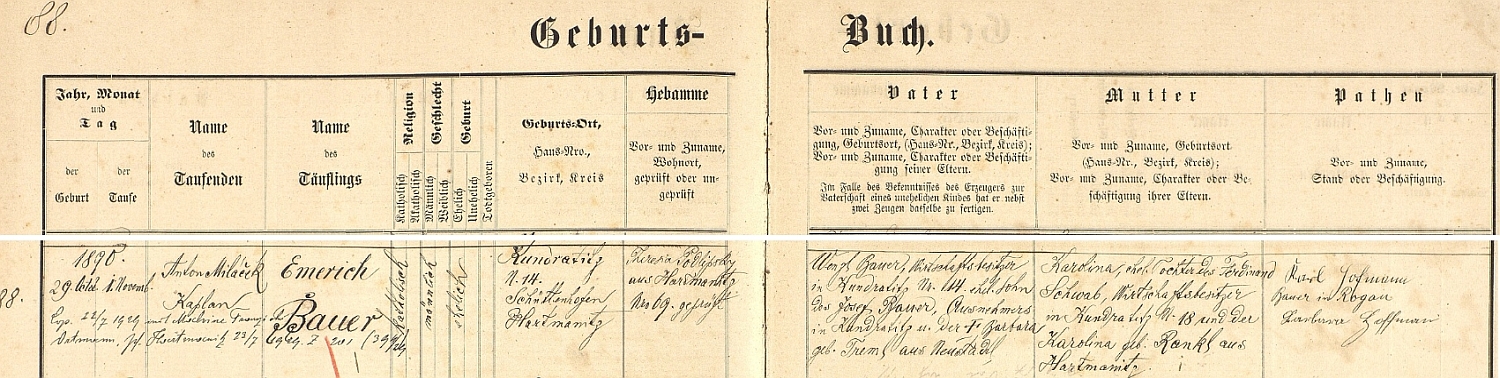 88.
Geburts-
Buch.
Jahr, Monat
und
Tag
der
Geburt
der
Taufe
Name
des
Taufenden
Name
des
Täuflings
Religion
Katholisch
Akatholisch
Geschlecht
Männlich
Weiblich
Geburt
Ehelich
Unehelich
Todtgeboren
Geburts-Ort,
Haus-Nro.,
Bezirk, Kreis
Hebamme
Vor- und Zuname,
Wohnort,
geprüft oder un-
geprüft
Vater
Vor- und Zuname, Charakter oder Beschäfti-
gung, Geburtsort, (Haus-Nr., Bezirk, Kreis);
Vor- und Zuname, Charakter oder Beschäfti-
gung seiner Eltern.
Im Falle des Bekenntnisses des Erzeugers zur
Vaterschaft eines unehelichen Kindes hat er nebst
zwei Zeugen dasselbe zu fertigen.
Mutter
Vor- und Zuname, Geburtsort
(Haus-Nr., Bezirk, Kreis);
Vor- und Zuname, Charakter oder Be-
schäftigung ihrer Eltern.
Pathen
Vor- und Zuname,
Stand oder Beschäftigung.
88.
1890.
29. Octob. 1. Novemb.
Cop. 22/7 1929
Anton Milaček
Kaplan
Emerich
Bauer
katholisch
männlich
ehelich
Kundratitz
N. 14.
Schüttenhofen
Hartmanitz
Theresia Podlipsky
aus Hartmanitz
Nro 69. geprüft
Wenzl Bauer, Wirtschaftsbesitzer
in Kundratitz Nr. 14 ehel. Sohn
des Josef Bauer, Ausnehmers
in Kundratitz u. der † Barbara
geb. Treml aus Neustadl
Karolina, ehel. Tochter des Ferdinand
Schwab, Wirtschaftsbesitzer
in Kundratitz N. 18 und der
Karolina geb. Rankl aus
Hartmanitz.
Karl Hofmann
Bauer in Rogau
Barbara Hoffmann